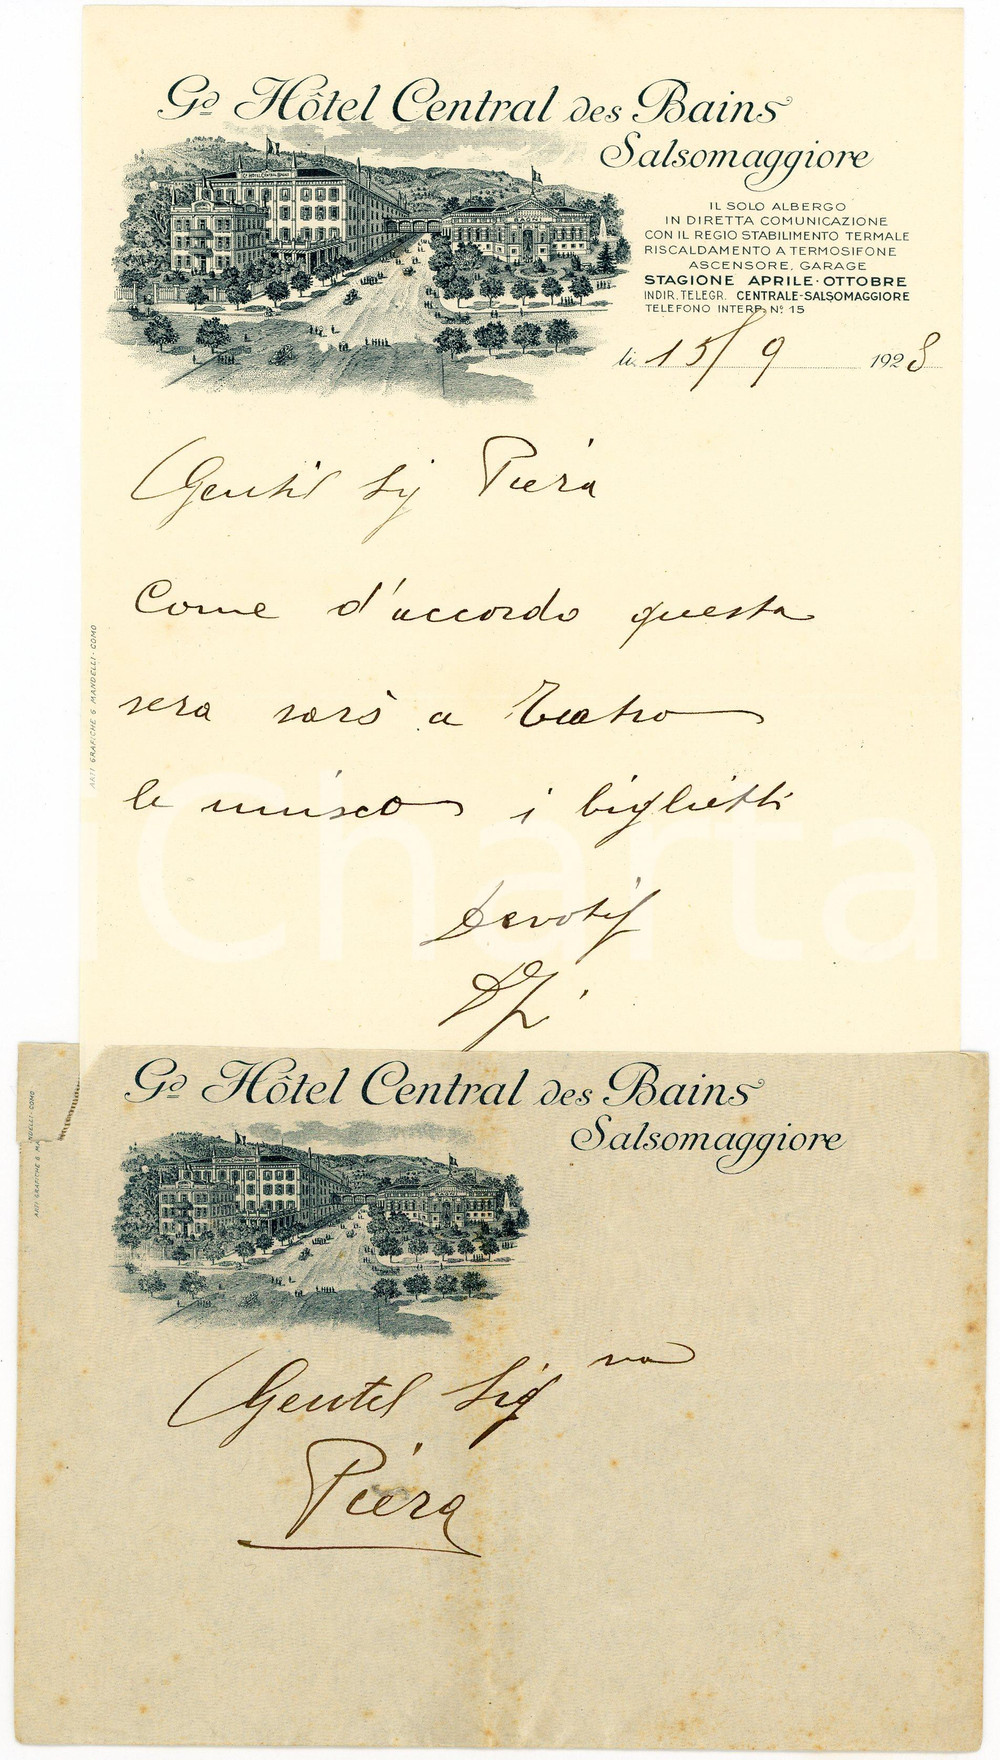 Gd Hôtel Central des Bains
Salsomaggiore
IL SOLO ALBERGO
IN DIRETTA COMUNICAZIONE
CON IL REGIO STABILIMENTO TERMALE
RISCALDAMENTO A TERMOSIFONE
ASCENSORE, GARAGE
STAGIONE APRILE-OTTOBRE
INDIR. TELEGR. CENTRALE-SALSOMAGGIORE
TELEFONO INTERP. No. 15
li 15/9 1928
Gd HOTEL CENTRAL BAINS
BAGNI
Gentil Sig Piera
Come d'accordo questa
sera sarò a Teatro
le unisco i biglietti
Devotis
ARTI GRAFICHE G. MANDELLI - COMO
Charta
Gd Hôtel Central des Bains
Salsomaggiore
BAGNI
Gentil Signa
Piera
ARTI GRAFICHE G. M NDELLI - COMO